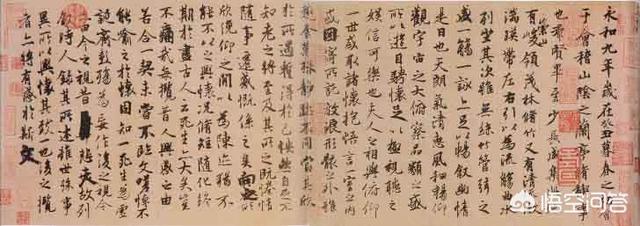 永和九年歲在癸丑暮春之初會
于會稽山陰之蘭亭脩稧事
也群賢畢至少長咸集此地
有崇山峻領茂林脩竹又有清流激
湍暎帶左右引以為流觴曲水
列坐其次雖無絲竹管弦之
盛一觴一詠亦足以暢叙幽情
是日也天朗氣清惠風和暢仰
觀宇宙之大俯察品類之盛
所以遊目騁懷足以極視聽之
娛信可樂也夫人之相與俯仰
一世或取諸懷抱悟言一室之內
或因寄所託放浪形骸之外雖
趣舍萬殊靜躁不同當其欣
於所遇暫得於己怏然自足不
知老之將至及其所之既惓情
隨事遷感慨係之矣向之所
欣俛仰之閒以為陳迹猶不
能不以之興懷況脩短隨化終
期於盡古人云死生亦大矣豈
不痛哉每攬昔人興感之由
若合一契未嘗不臨文嗟悼不
能喻之於懷固知一死生為虛
誕齊彭殤為妄作後之視今
亦由今之視昔悲夫故列
敘時人錄其所述雖世殊事
異所以興懷其致一也後之攬
者亦將有感於斯文
悟空问答